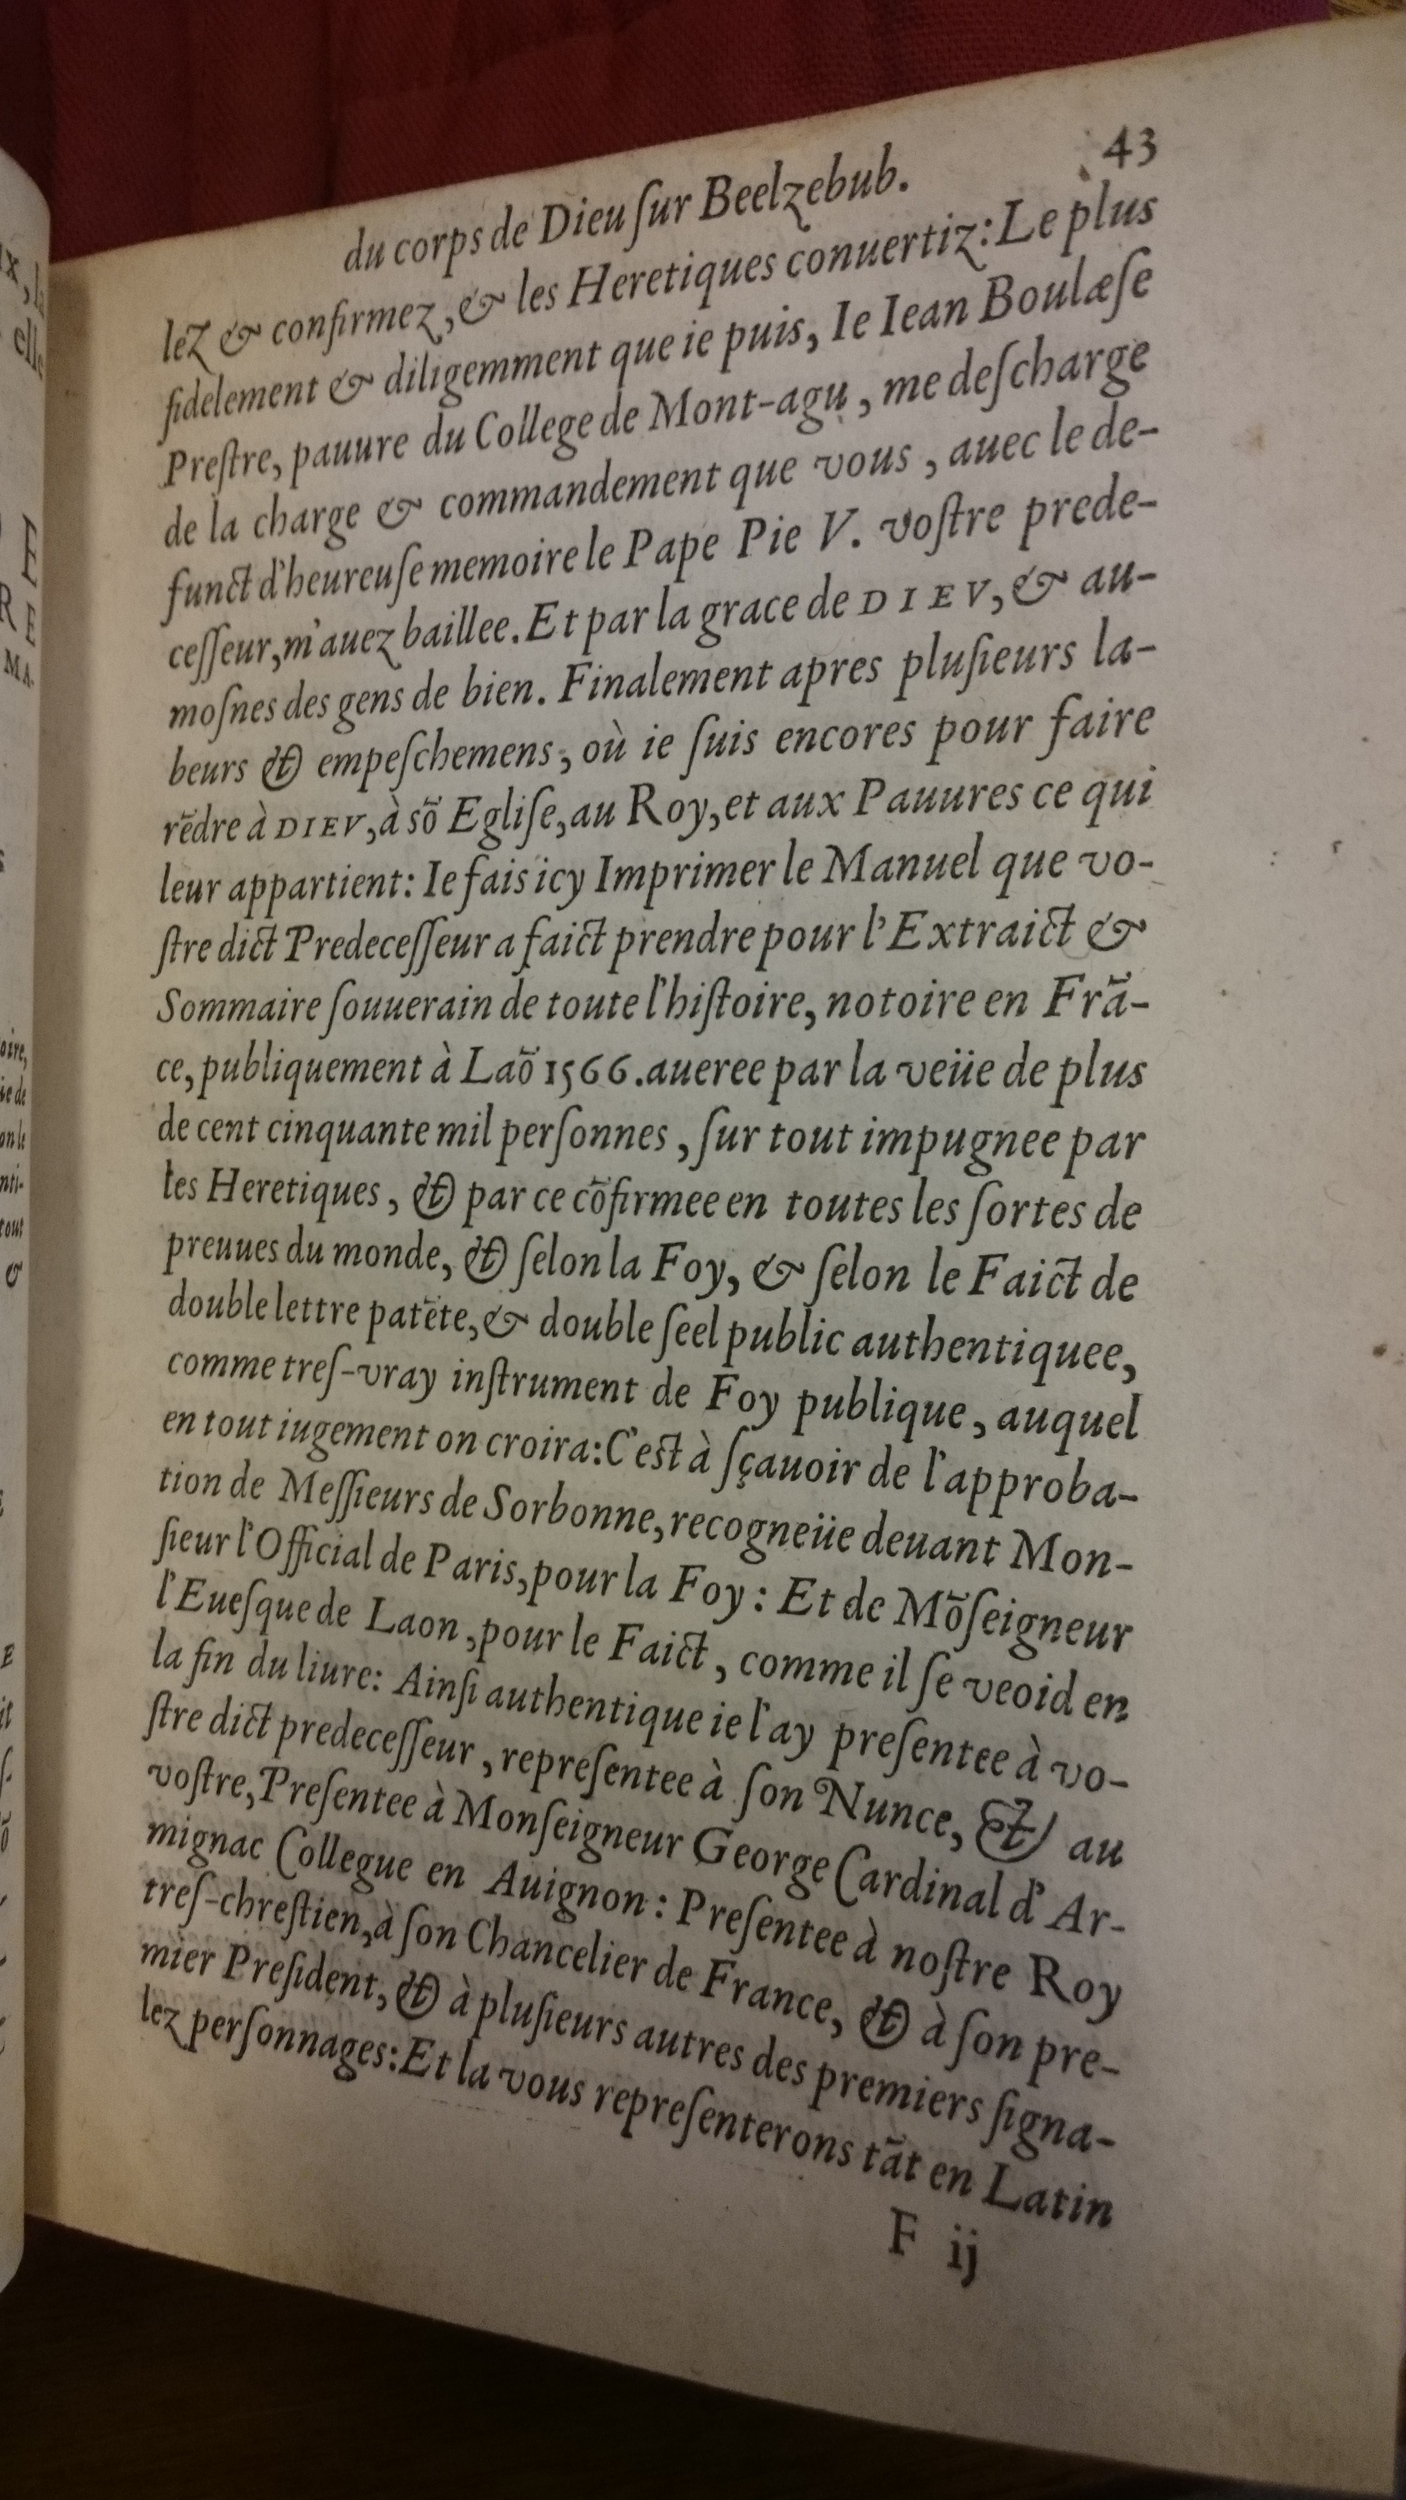 43
du corps de Dieu ſur Beelzebub.
lez & confirmez, & les Heretiques conuertiz: Le plus
fidelement & diligemment que ie puis, Ie Iean Boulæſe
Preſtre, pauure du College de Mont-agu, me deſcharge
de la charge & commandement que vous, auec le de-
funct d'heureuſe memoire le Pape Pie V. voſtre prede-
ceſſeur, m'auez baillee. Et par la grace de DIEV, & au-
moſnes des gens de bien. Finalement apres pluſieurs la-
beurs & empeſchemens, où ie ſuis encores pour faire
rẽdre à DIEV, à sõ Egliſe, au Roy, et aux Pauures ce qui
leur appartient: Ie fais icy Imprimer le Manuel que vo-
ſtre dict Predeceſſeur a faict prendre pour l'Extraict &
Sommaire ſouuerain de toute l'hiſtoire, notoire en Frã-
ce, publiquement à Laõ 1566. aueree par la veüe de plus
de cent cinquante mil perſonnes, ſur tout impugnee par
les Heretiques, & par ce cõfirmee en toutes les ſortes de
preuues du monde, & ſelon la Foy, & ſelon le Faict de
double lettre patẽte, & double ſeel public authentiquee,
comme treſ-vray inſtrument de Foy publique, auquel
en tout iugement on croira: C'est à ſçauoir de l'approba-
tion de Meſſieurs de Sorbonne, recogneüe deuant Mon-
ſieur l'Official de Paris, pour la Foy: Et de Mõſeigneur
l'Eueſque de Laon, pour le Faict, comme il ſe veoid en
la fin du liure: Ainſi authentique ie l'ay preſentee à vo-
ſtre dict predeceſſeur, repreſentee à ſon Nunce, & au
voſtre, Preſentee à Monſeigneur George Cardinal d'Ar-
mignac Collegue en Auignon: Preſentee à noſtre Roy
treſ-chreſtien, à ſon Chancelier de France, & à ſon pre-
mier Preſident, & à pluſieurs autres des premiers ſigna-
lez perſonnages: Et la vous repreſenterons tãt en Latin
F ij